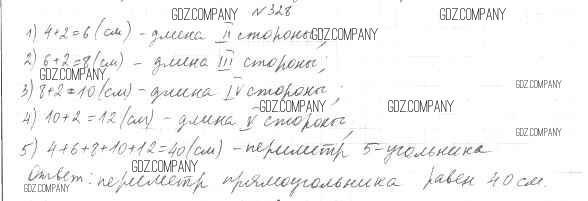 GDZ.COMPANY №328 GDZ.COMPANY
1) 4+2=6 (см) - длина II стороны; GDZ.COMPANY
2) 6+2=8 (см) - длина III стороны;
GDZ.COMPANY
3) 8+2=10 (см) - длина IV стороны; GDZ.COMPANY
GDZ.COMPANY GDZ.COMPANY
4) 10+2=12 (см) - длина V стороны;
GDZ.COMPANY
5) 4+6+8+10+12=40 (см) - периметр 5-угольника
GDZ.COMPANY
Ответ: периметр прямоугольника равен 40 см.
GDZ.COMPANY GDZ.COMPANY